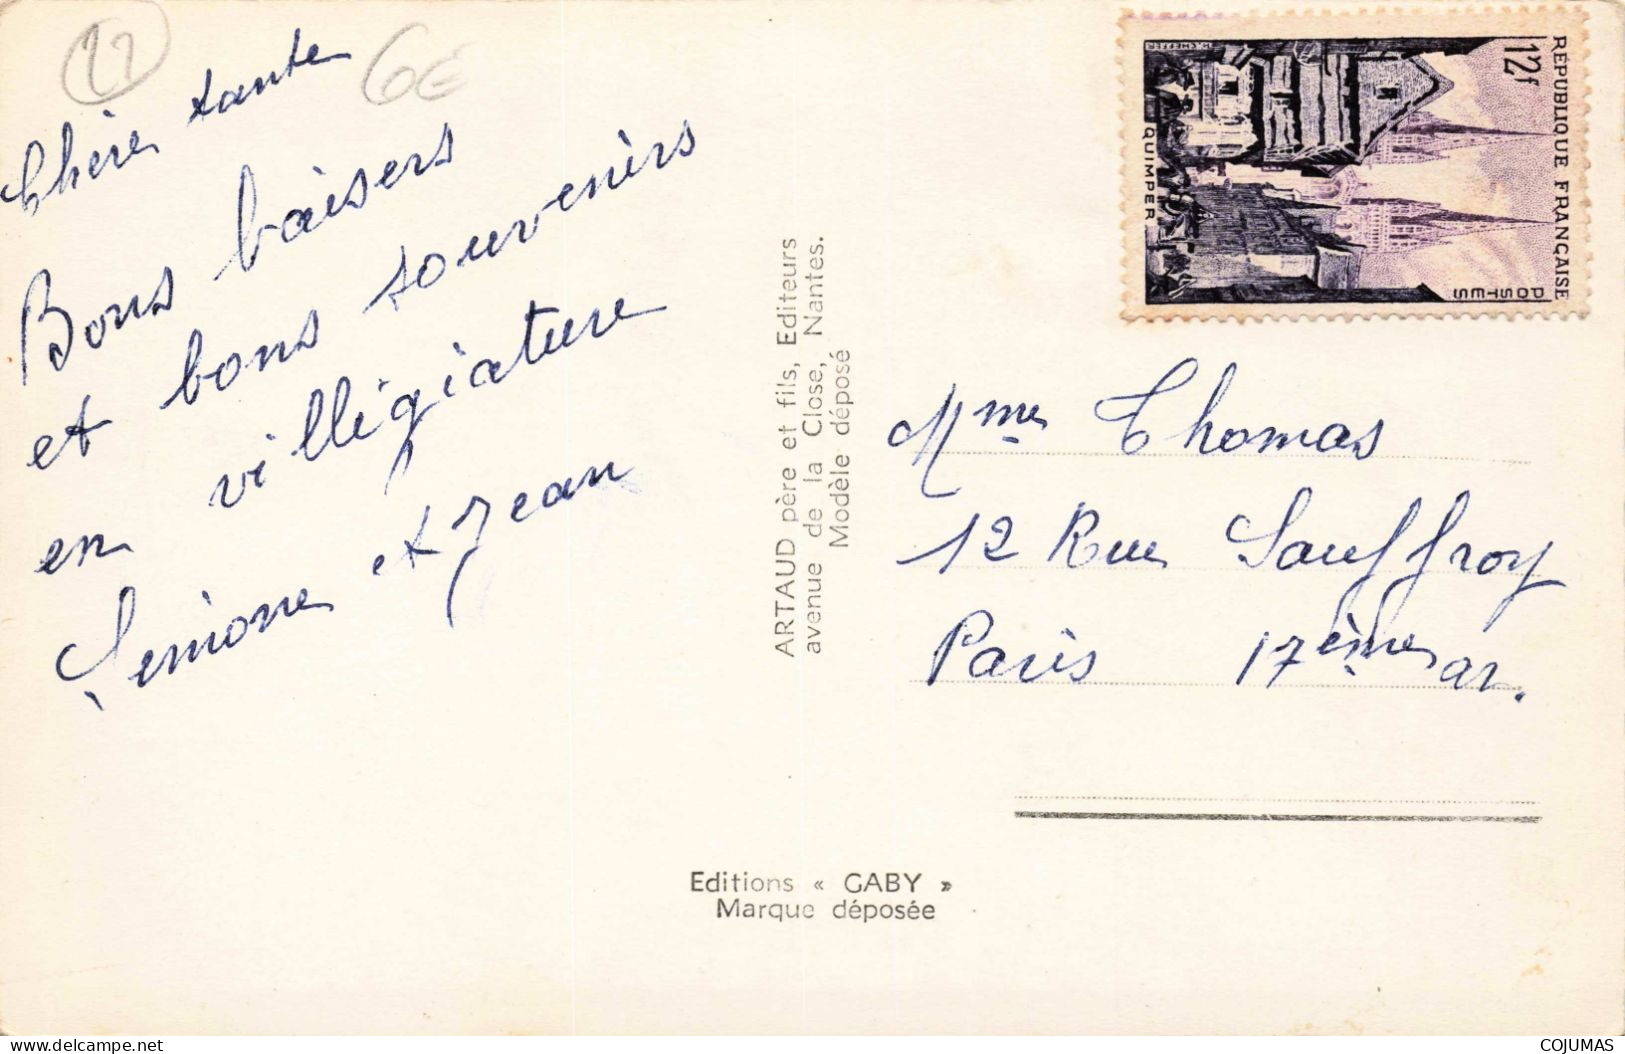 22
6€
Chère tante
Bons baisers
et bons souvenirs
en villégiature
Simone et Jean
ARTAUD père et fils, Editeurs
avenue de la Close, Nantes.
Modèle déposé
RÉPUBLIQUE FRANÇAISE
12f
POSTES
QUIMPER
Mme Thomas
12 Rue Sauffroy
Paris 17ème ar.
Editions « GABY »
Marque déposée
COJUMAS